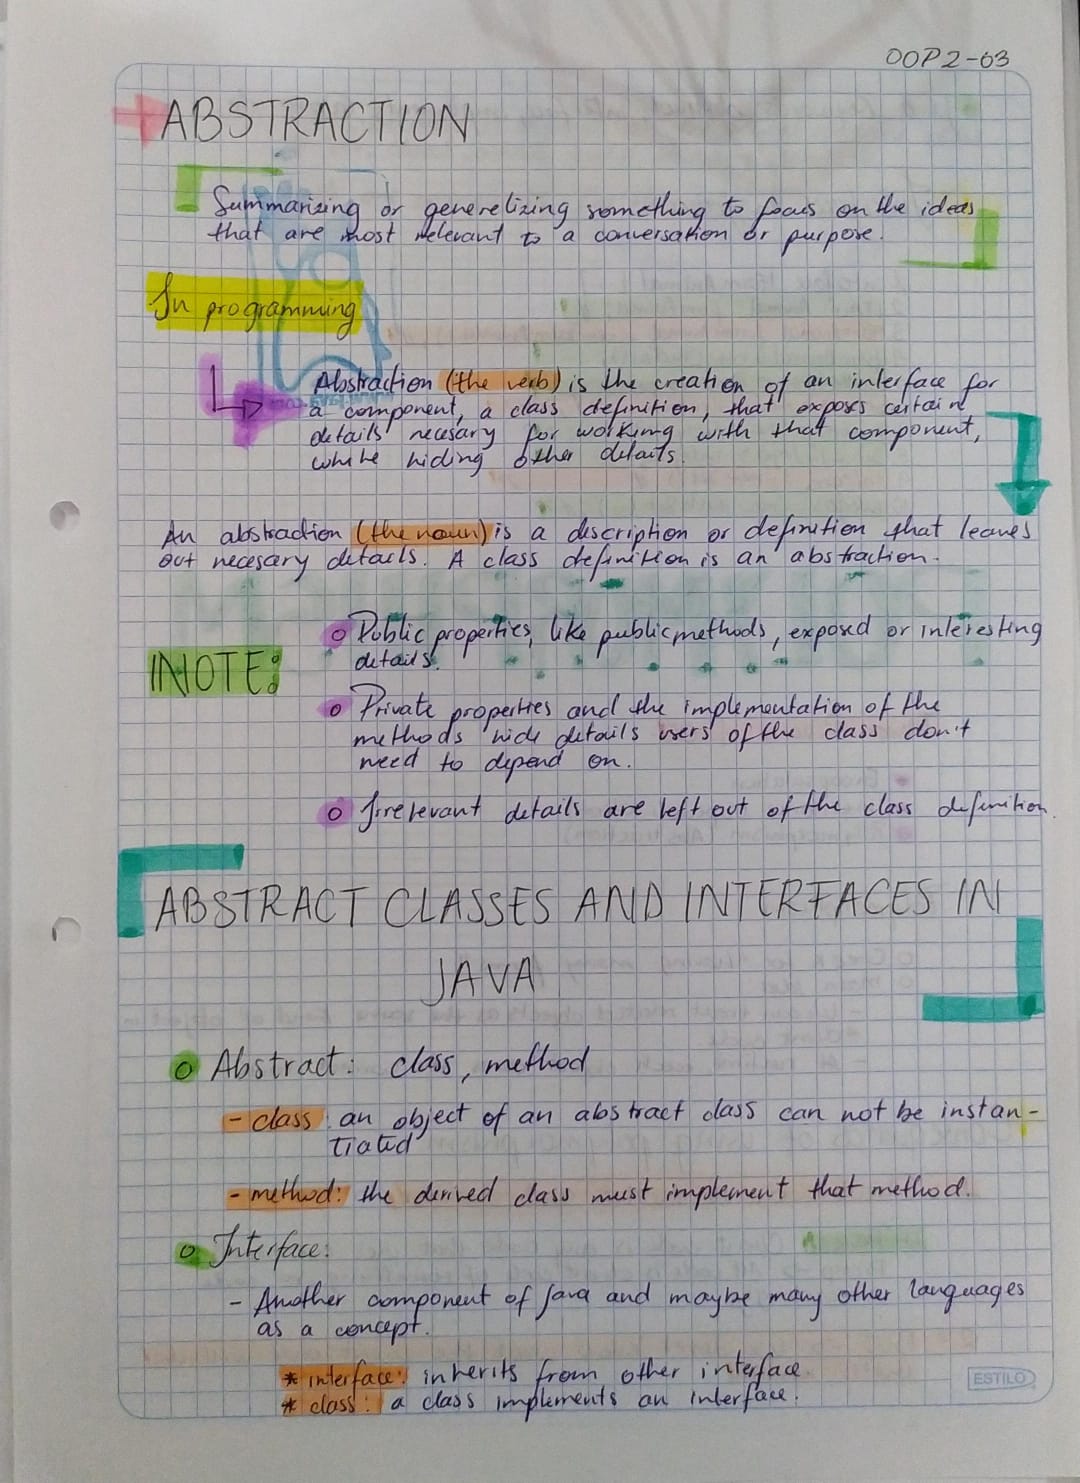 OOP2-03
ABSTRACTION
Summarizing or generelizing something to focus on the ideas
that are most relevant to a conversation or purpose.
In programming
Abstraction (the verb) is the creation of an interface for
a component, a class definition, that exposes certain
details necesary for working with that component,
while hiding other details.
An abstraction (the noun) is a description or definition that leaves
out necesary details. A class definition is an abstraction.
NOTE:
o Public properties, like public methods, exposed or interesting
details.
o Private properties and the implementation of the
methods hide details users of the class don't
need to depend on.
o Irrelevant details are left out of the class definition.
ABSTRACT CLASSES AND INTERFACES IN
JAVA
o Abstract: class, method
- class: an object of an abstract class can not be instan-
tiated
- method: the derived class must implement that method.
o Interface:
- Another component of Java and maybe many other languages
as a concept.
* interface: inherits from other interface.
* class: a class implements an interface.
ESTILO